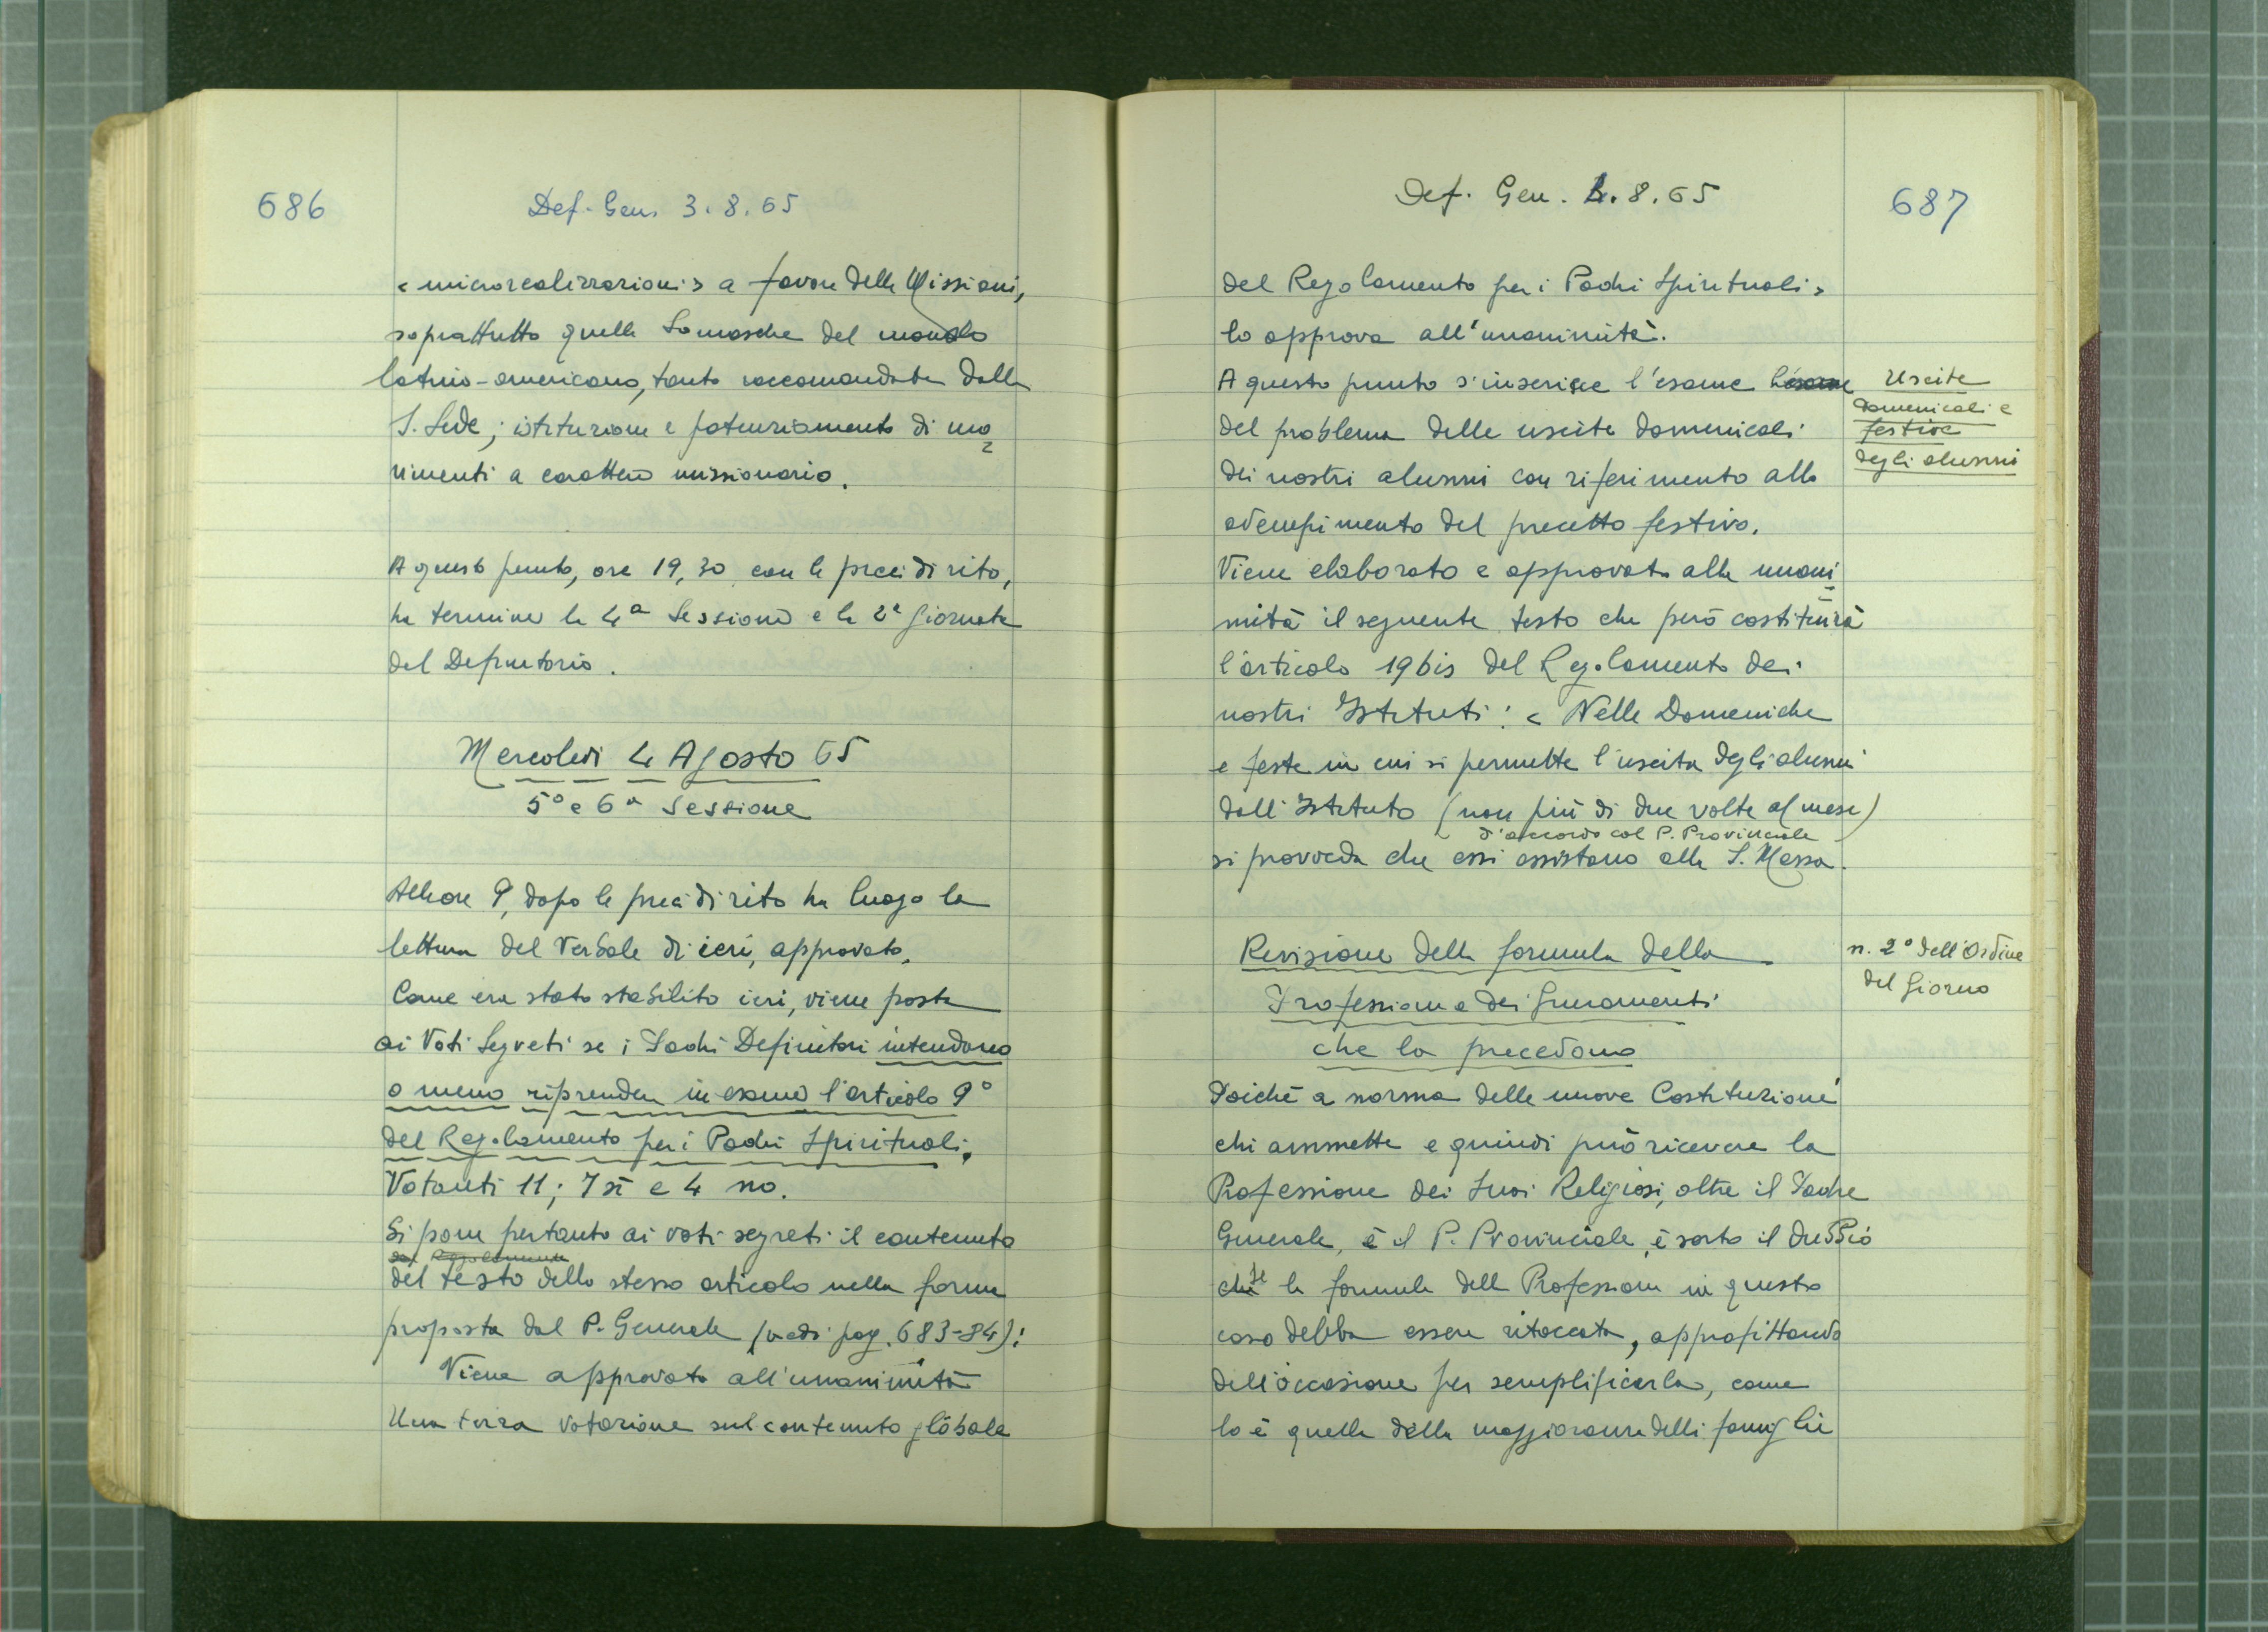 686
Def. Gen. 3.8.65
< microrealizzazioni > a favore delle Missioni,
soprattutto quelle Somasche del mondo
latino-americano, tanto raccomandate dalla
S. Sede; istituzione e potenziamento di mo=
vimenti a carattere missionario.
A questo punto, ore 19,30 con le preci di rito,
ha termine la 4ª Sessione e la 2ª giornata
del Definitorio.
Mercoledì 4 Agosto 65
5ª e 6ª Sessione
Alle ore 9, dopo le preci di rito ha luogo la
lettura del Verbale di ieri, approvato.
Come era stato stabilito ieri, viene posto
ai Voti Segreti se i Padri Definitori intendono
o meno riprendere in esame l'articolo 9°
del Regolamento per i Padri Spirituali.
Votanti 11; 7 sì e 4 no.
Si pone pertanto ai voti segreti il contenuto
del Regolamento
del testo dello stesso articolo nella forma
proposta dal P. Generale (vedi pag. 683-84):
Viene approvato all'unanimità
Una terza votazione sul contenuto globale
Def. Gen. 4.8.65
687
del Regolamento per i Padri Spirituali,
lo approva all'unanimità.
A questo punto s'inserisce l'esame l'esame
Uscite
domenicali e
festive
degli alunni
del problema delle uscite domenicali
dei nostri alunni con riferimento allo
adempimento del precetto festivo.
Viene elaborato e approvato alla unani=
mità il seguente testo che però costituirà
l'articolo 19 bis del Regolamento dei
nostri Istituti: < Nelle Domeniche
e feste in cui si permette l'uscita degli alunni
dall'Istituto (non più di due volte al mese)
d'accordo col P. Provinciale
si provveda che essi assistano alla S. Messa.
Revisione della formula della
n. 2° dell'Ordine
del Giorno
Professione e dei Giuramenti
che la precedono
Poiché a norma delle nuove Costituzioni
chi ammette e quindi può ricevere la
Professione dei Suoi Religiosi, oltre il Padre
Generale, è il P. Provinciale, è sorto il dubbio
che se la formula della Professione in questo
caso debba essere ritoccata, approfittando
dell'occasione per semplificarla, come
lo è quella della maggioranza delle famiglie